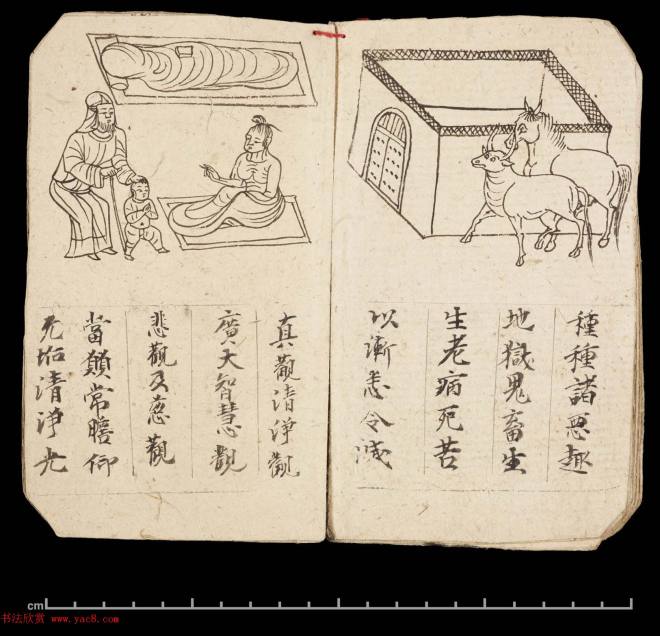 種種諸惡趣
地獄鬼畜生
生老病死苦
以漸悉令滅
真觀清淨觀
廣大智慧觀
悲觀及慈觀
當願常瞻仰
无垢清淨光
cm
书法欣赏 www.yac8.com